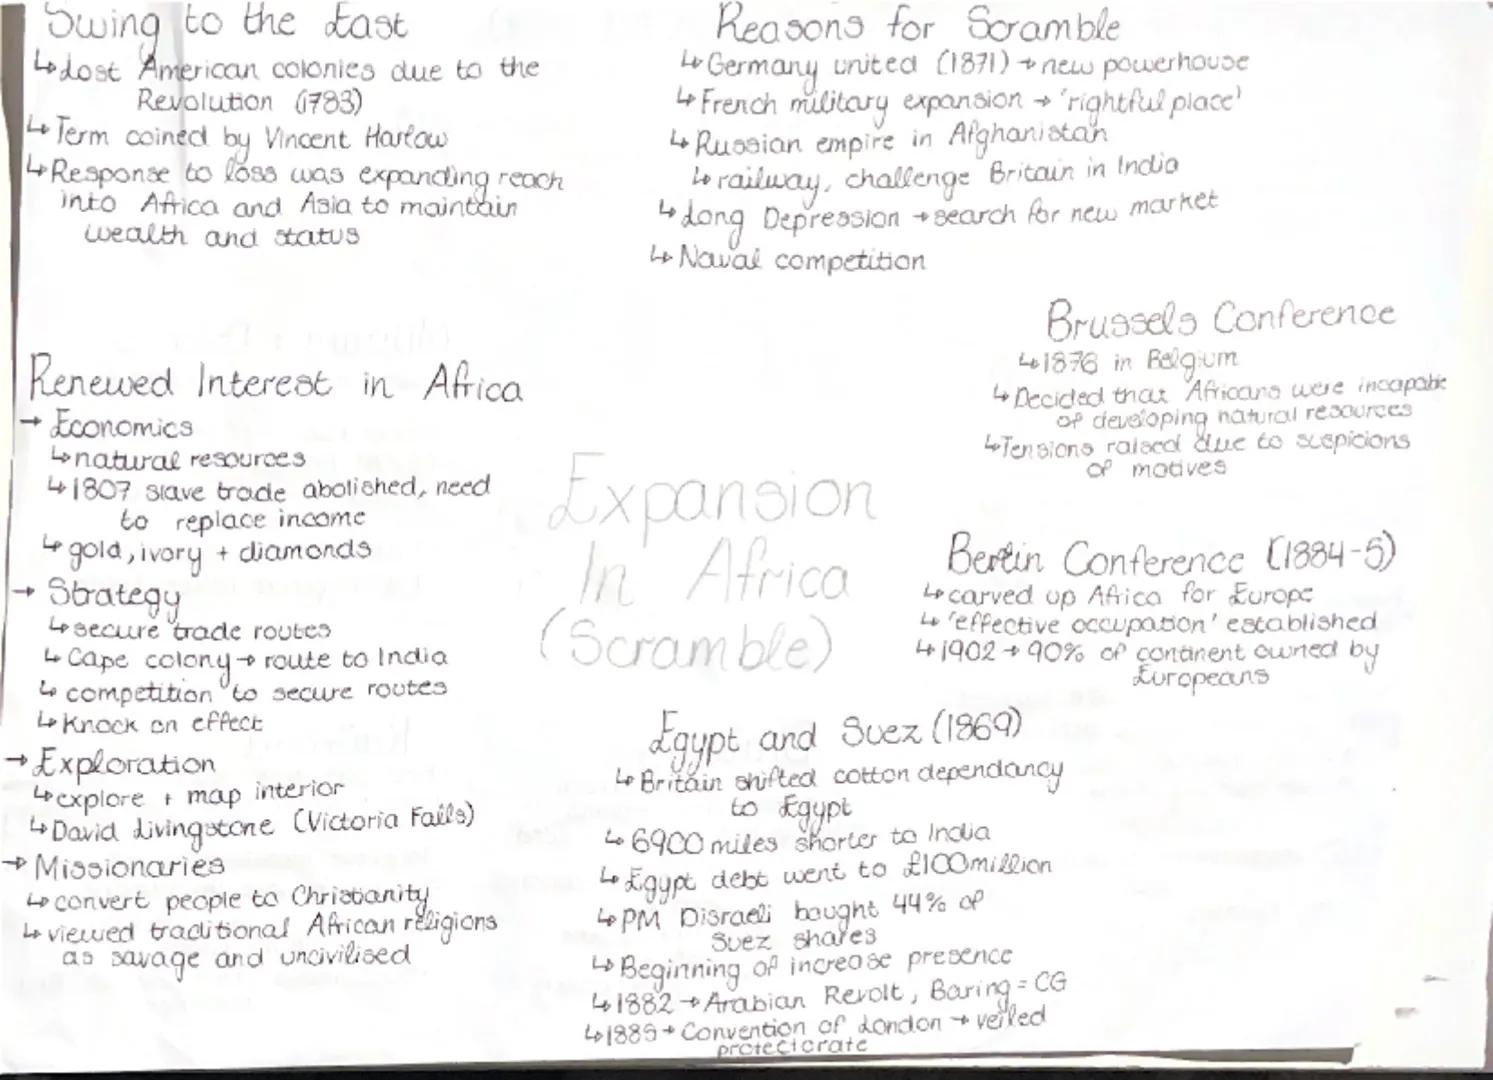 Swing to the East
↳ Lost American colonies due to the
Revolution (1783)
↳ Term coined by Vincent Harlow
↳ Response to loss was expanding reach
into Africa and Asia to maintain
wealth and status
Renewed Interest in Africa
→ Economics
↳ natural resources
↳ 1807 slave trade abolished, need
to replace income
↳ gold, ivory + diamonds
→ Strategy
↳ secure trade routes
↳ Cape colony → route to India
↳ competition to secure routes
↳ Knock on effect
→ Exploration
↳ explore + map interior
↳ David Livingstone (Victoria Falls)
→ Missionaries
↳ convert people to Christianity
↳ viewed traditional African religions
as savage and uncivilised
Expansion
In Africa
(Scramble)
Reasons for Scramble
↳ Germany united (1871) → new powerhouse
↳ French military expansion → 'rightful place'
↳ Russian empire in Afghanistan
↳ railway, challenge Britain in India
↳ Long Depression → search for new market
↳ Naval competition
Brussels Conference
↳ 1876 in Belgium
↳ Decided that Africans were incapable
of developing natural resources
↳ Tensions raised due to suspicions
of motives
Berlin Conference (1884-5)
↳ carved up Africa for Europe
↳ 'effective occupation' established
↳ 1902 → 90% of continent owned by
Europeans
Egypt and Suez (1869)
↳ Britain shifted cotton dependancy
to Egypt
↳ 6900 miles shorter to India
↳ Egypt debt went to £100million
↳ PM Disraeli bought 44% of
Suez shares
↳ Beginning of increase presence
↳ 1882 → Arabian Revolt, Baring = CG
↳ 1885 → Convention of London → veiled
protectorate